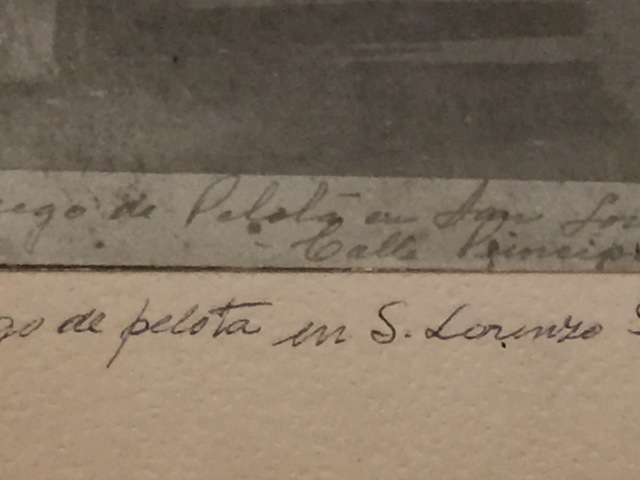 uego de Pelota en San Lo
- Calle Princip
go de pelota en S. Lorenzo